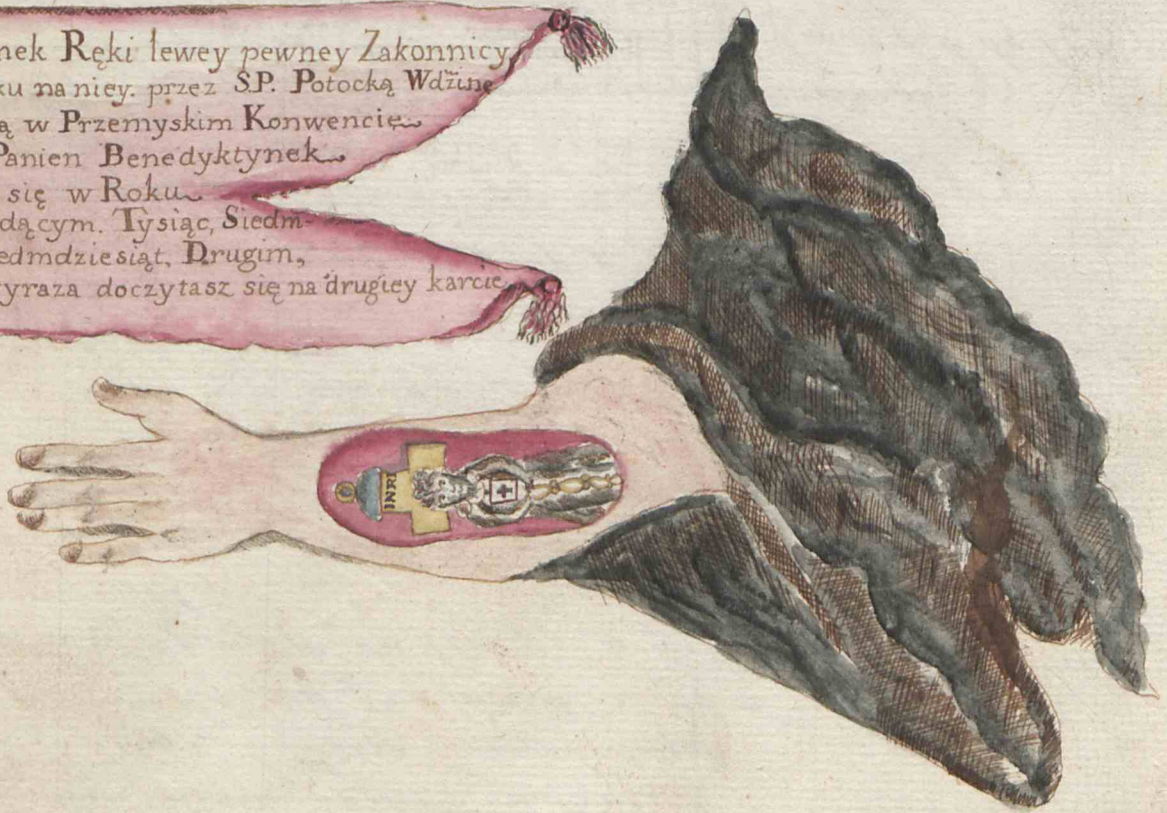 nek Ręki lewey pewney Zakonnicy
ku na niey. przez S.P. Potocką Wdzinę
ą w Przemyskim Konwencie
Panien Benedyktynek
się w Roku
dącym. Tysiąc, Siedm-
edmdziesiąt, Drugim,
yraza doczytasz się na drugiey karcie
INRI